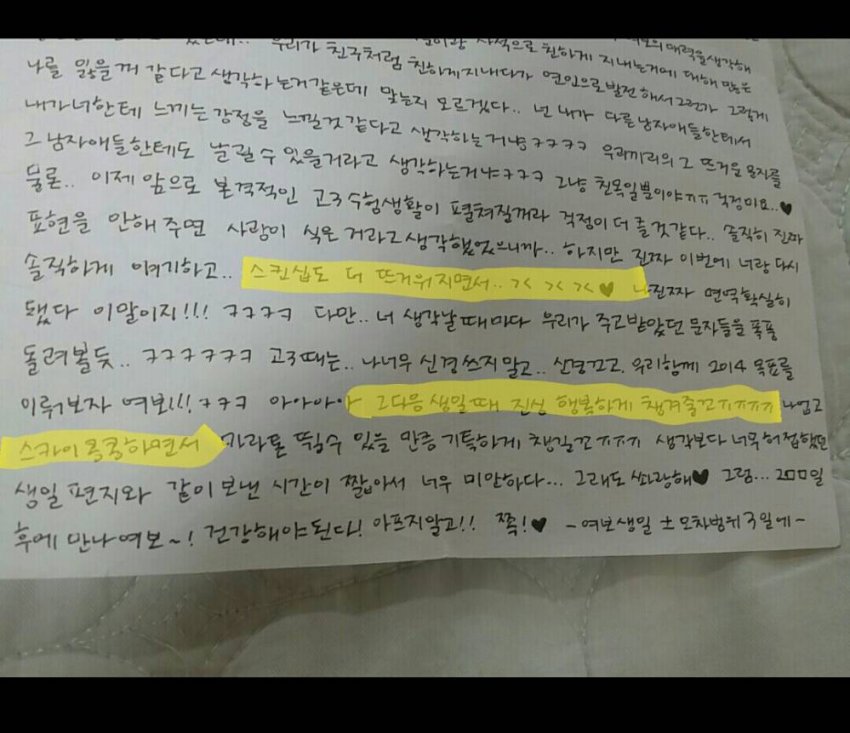 사적으로 친하게 지내는거에 대해 많은 매력을생각해
우리가 친구처럼 친하게지내다가 연인으로발전해서그런가 그렇게
나를 잃을꺼 같다고 생각하는거같은데 맞는지 모르겠다.. 넌 내가 다른남자애들한테서
내가너한테 느끼는감정을 느낄것같다고 생각하는거냥ㅋㅋㅋㅋ 우리끼리의 그 뜨거운 문자를
그 남자애들한테도 날릴 수 있을거라고 생각하는거냐ㅋㅋㅋ 그냥 친목일뿐이야ㅠㅠ 걱정마요..♥
물론.. 이제 앞으로 본격적인 고3수험생활이 펼쳐질꺼라 걱정이더 클것같다.. 솔직히 진짜
표현을 안해주면 사랑이 식은거라고생각했었으니까.. 하지만 진짜 이번에 너랑다시
솔직하게 얘기하고.. 스킨십도 더 뜨거워지면서..>< >< ><♥ 나진짜 면역확실히
됐다 이말이지!!! ㅋㅋㅋㅋ 다만.. 너 생각날때마다 우리가 주고받았던문자들을 폭풍
돌려볼듯.. ㅋㅋㅋㅋㅋㅋ 고3때는.. 나너무 신경쓰지말고.. 신경끄고, 우리함께 2014 목표를
이뤄보자 여보!!! ㅋㅋㅋ 아아아아 그다음생일때 진심 행복하게 챙겨줄꼬ㅠㅠㅠㅠ 나업고
스카이콩콩하면서 마라톤 뛰실수 있을 만큼기특하게 챙길꼬ㅠㅠㅠ 생각보다 너무허접했던
생일 편지와 같이보낸 시간이 짧아서 너무 미안하다... 그래도 싸랑해♥ 그럼... 200일
후에 만나여보~! 건강해야된다! 아프지말고!! 쪽!♥ -여보생일 ± 오차범위 3일에-